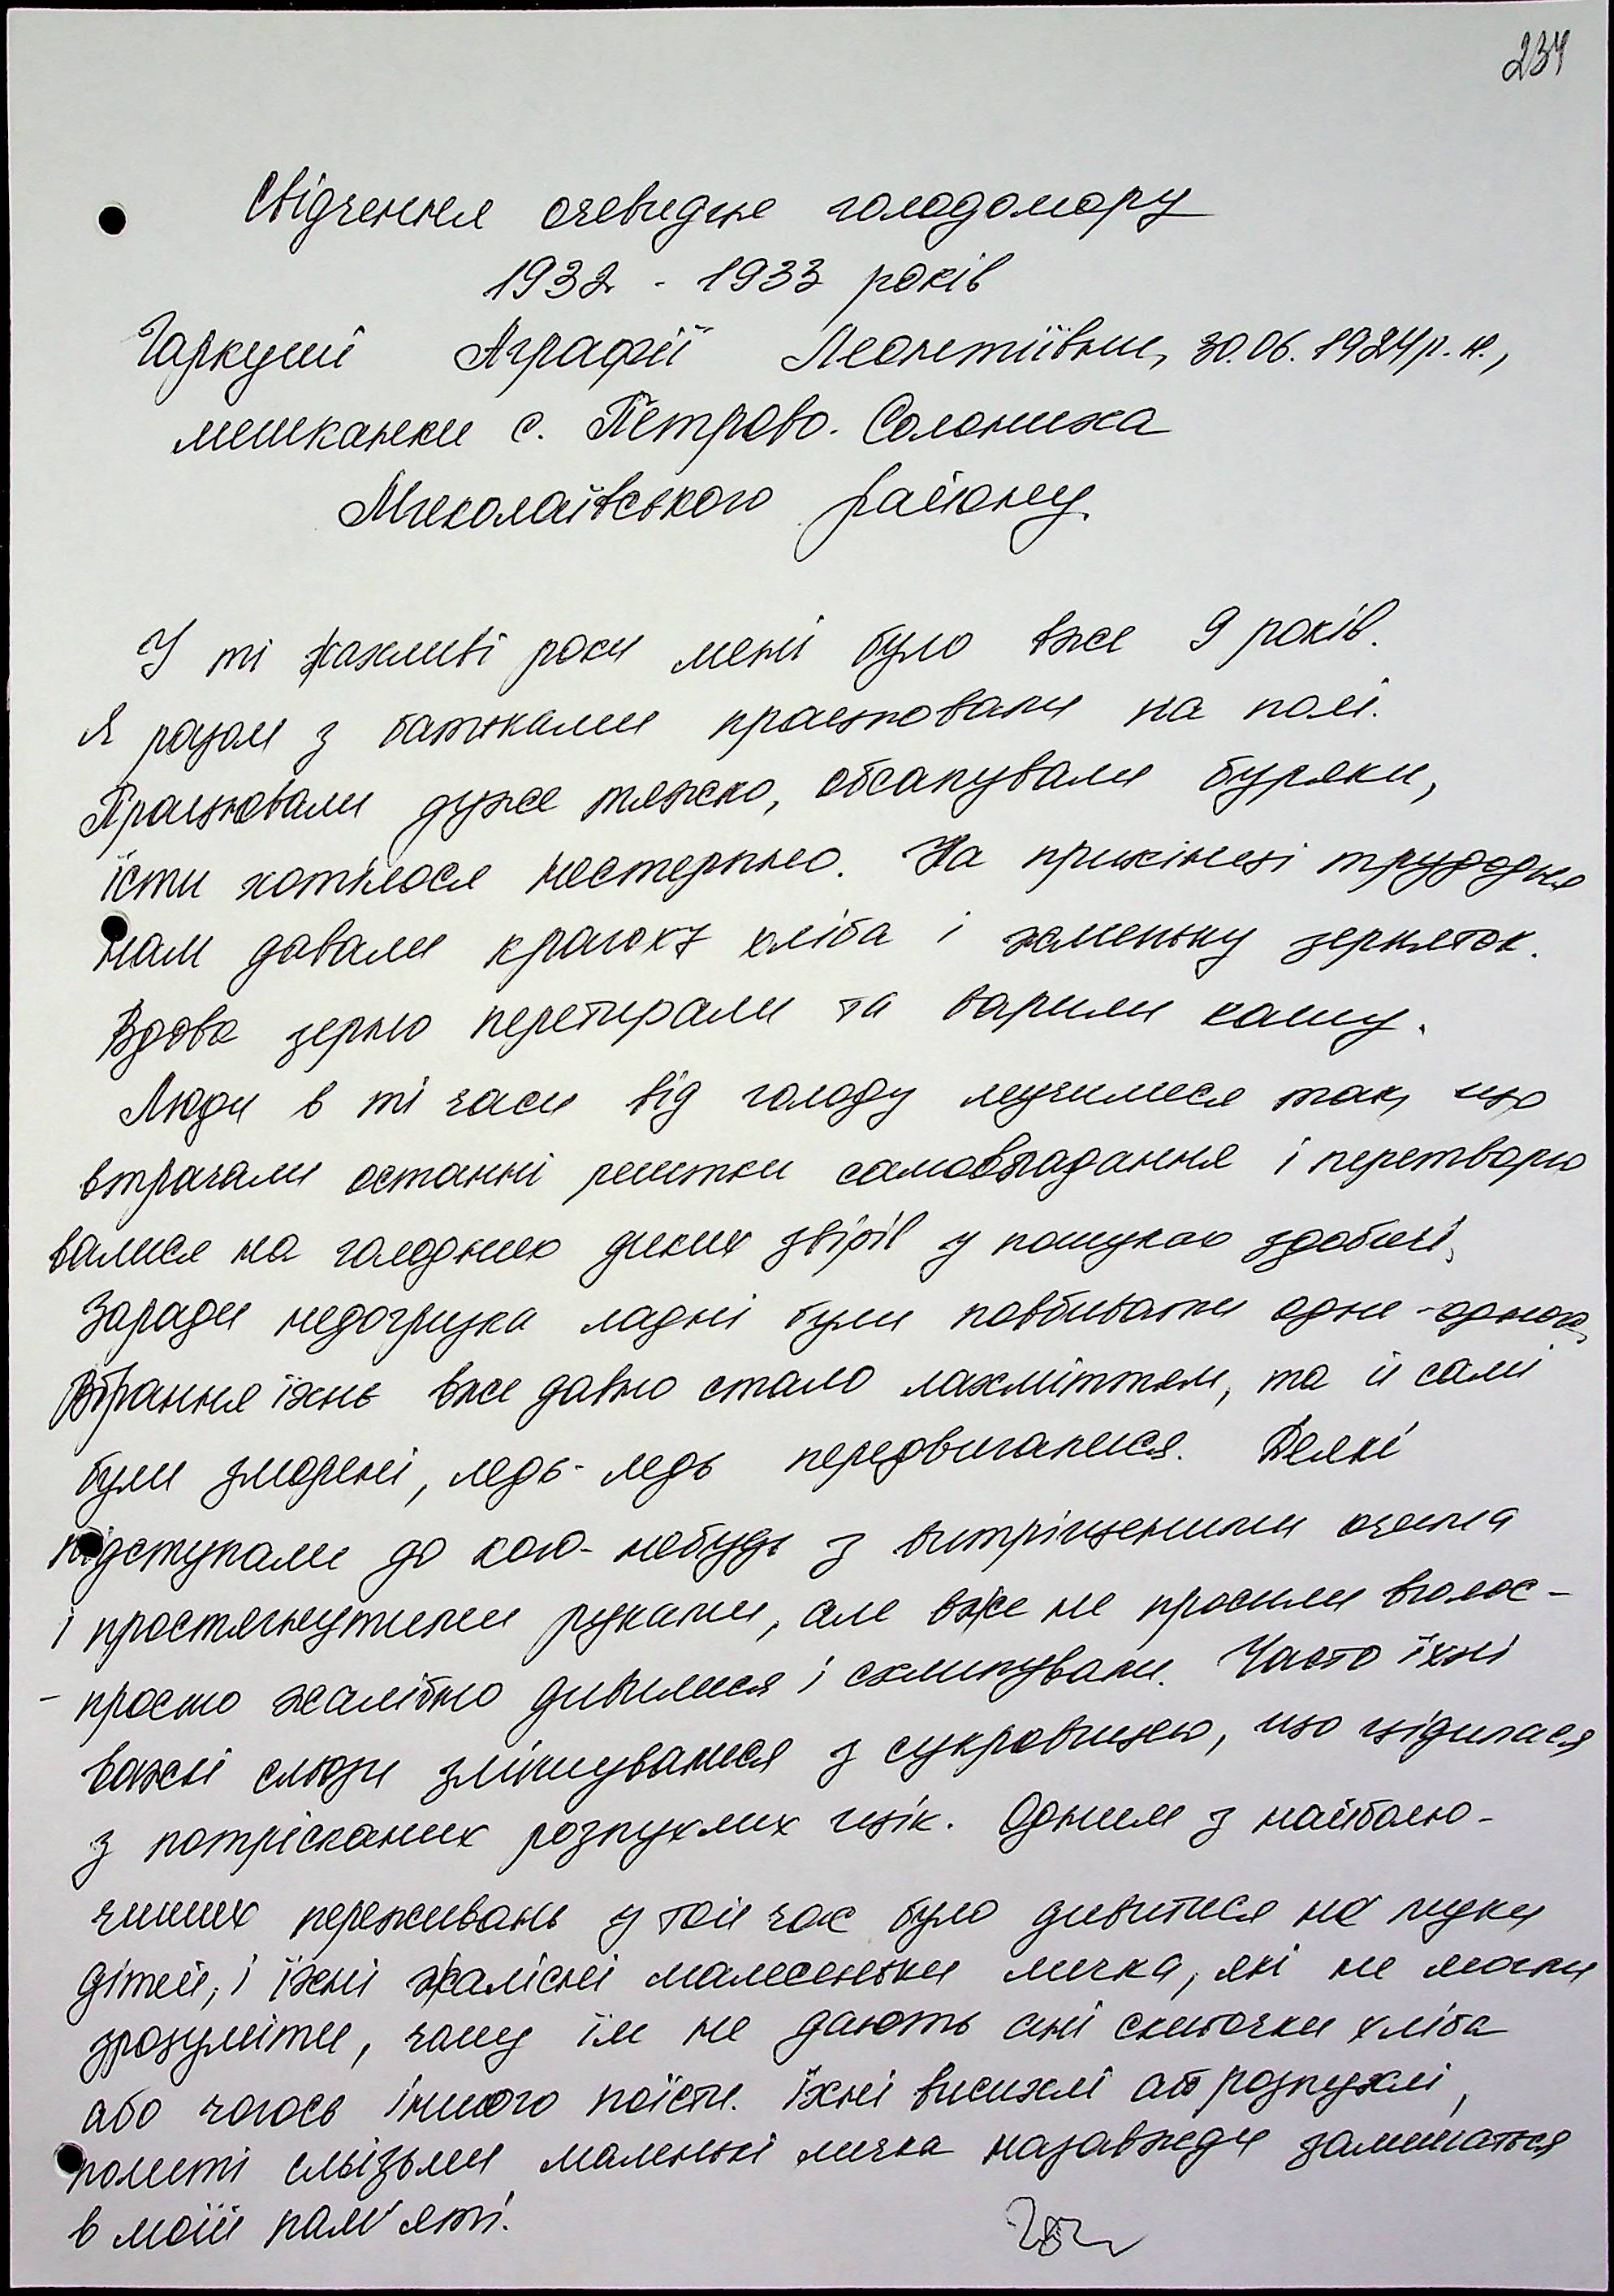 234
Свідчення очевидце голодомору
1932 - 1933 років
Гаркуші Аграфії Леонтіївни, 30.06.1924 р.н.,
мешканки с. Петрово-Солониха
Миколаївського району
У ті жахливі роки мені було вже 9 років.
Я разом з батьками працювали на полі.
Працювали дуже тяжко, обсапували буряки,
їсти хотілося нестерпно. На прикінеці трудодня
нам давали краюху хліба і жменьку зерняток.
Вдома зерно перетирали та варили кашу.
Люди в ті часи від голоду мучилися так, що
втрачали останні рештки самовладання і перетворю
валися на голодних диких звірів у пошуках здобичі.
Заради недогризка ладні були повбивати одне-одного.
Вбрання їхнє вже давно стало лахміттям, та й самі
були зморені, ледь-ледь передвигалися. Деякі
підступали до кого-небудь з витріщеними очима
і простягнутими руками, але вже не просили вголос -
- просто жалібно дивилися і схлипували. Часто їхні
важкі сльози змішувалися з сукровицею, що цідилася
з потрісканих розпухлих щік. Одним з найболю-
чиших переживань у той час було дивитися на муки
дітей, і їхні жалісні малесеньки личка, які не могли
зрозуміти, чому їм не дають ані скибочки хліба
або чогось іншого поїсти. Їхні висихлі або розпухлі,
политі слізьми маленькі личка назавжди залишаться
в моїй пам'яті.